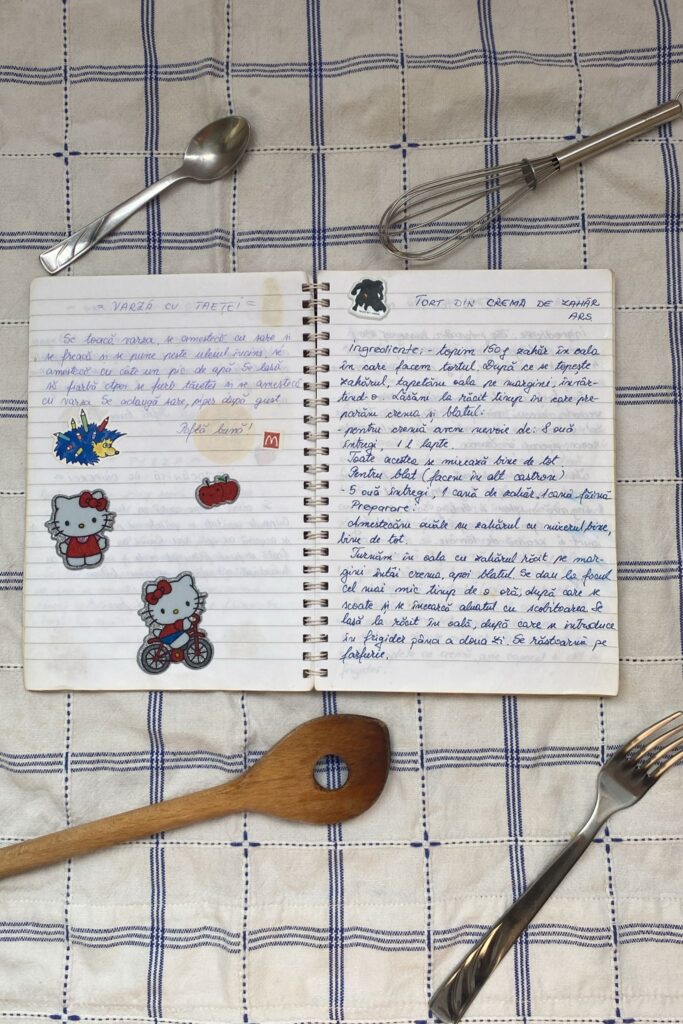 = VARZĂ CU TAEȚEI =
Se toacă varza, se amestecă cu sare și
se freacă și se pune peste uleiul încins, se
amestecă cu câte un pic de apă. Se lasă
să fiarbă apoi se fierb tăieței și se amestecă
cu varza. Se adaugă sare, piper după gust.
Poftă bună!
M
TORT DIN CREMĂ DE ZAHĂR
ARS.
Ingrediente: - topim 150g zahăr în oala
în care facem tortul. După ce se topește
zahărul, tapetăm oala pe margini, învâr-
tind-o. Lăsăm la răcit timp în care pre-
parăm crema și blatul.
- pentru cremă avem nevoie de: 8 ouă
întregi, 1 l lapte.
Toate acestea se mixează bine de tot.
Pentru blat (facem în alt castron)
- 5 ouă întregi, 1 cană de zahăr, 1 cană făină
Preparare:
Amestecăm ouăle cu zahărul cu mixerul bine,
bine de tot.
Turnăm în oala cu zahărul răcit pe mar-
gini întâi crema, apoi blatul. Se dau la focul
cel mai mic timp de o oră, după care se
scoate și se încearcă aluatul cu scobitoarea. Se
lasă la răcit în oală, după care se introduce
în frigider până a doua zi. Se răstoarnă pe
farfurie.